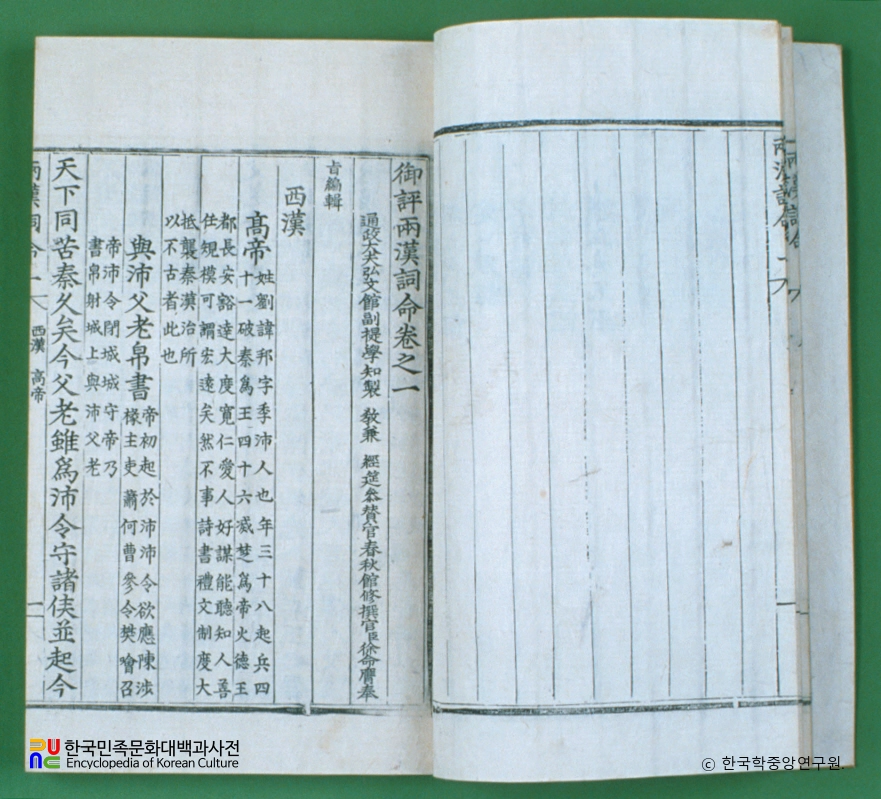 御評兩漢詞命卷之一
通政大夫弘文館副提學知製 敎兼 經筵參贊官春秋館修撰官臣徐命膺奉
旨編輯
西漢
高帝
姓劉諱邦字季沛人也年三十八起兵四
十一破秦爲王四十六滅楚爲帝火德王
都長安豁達大度寬仁愛人好謀能聽知人善
任規模可謂宏遠矣然不事詩書禮文制度大
抵襲秦漢治所
以不古者此也
與沛父老帛書
帝初起於沛沛令欲應陳涉
椽主吏蕭何曹參令樊噲召
帝沛令閉城城守帝乃
書帛射城上與沛父老
天下同苦秦久矣今父老雖爲沛令守諸侯並起今
兩漢詞命 一 西漢 高帝 一
兩漢詞命 一
한국민족문화대백과사전
Encyclopedia of Korean Culture
ⓒ 한국학중앙연구원